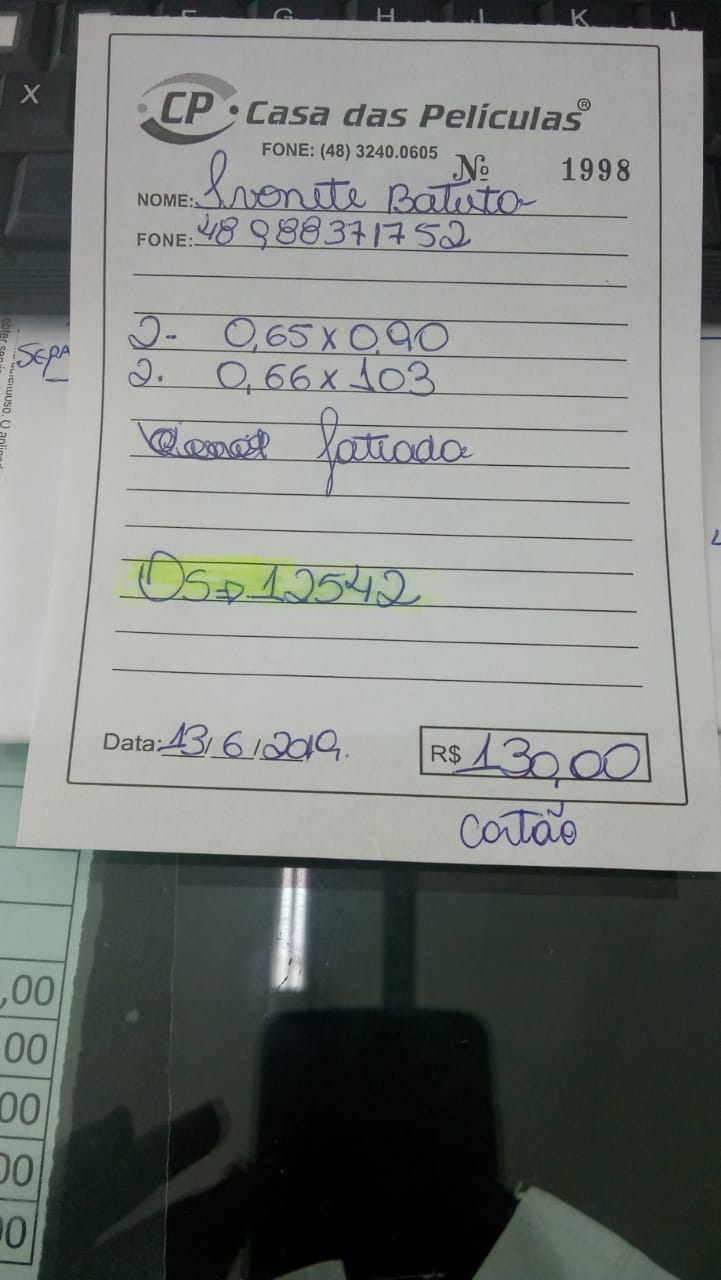 G H J K L
X
CP Casa das Películas®
FONE: (48) 3240.0605
Nº 1998
NOME: Ivonete Batuta
FONE: 48 988371752
2- 0,65 x 0,90
2. 0,66 x 103
fatiada
OS⇒12542
Data: 13/6/2019.
R$ 130,00
cartão
SEPA
,00
00
00
00
0